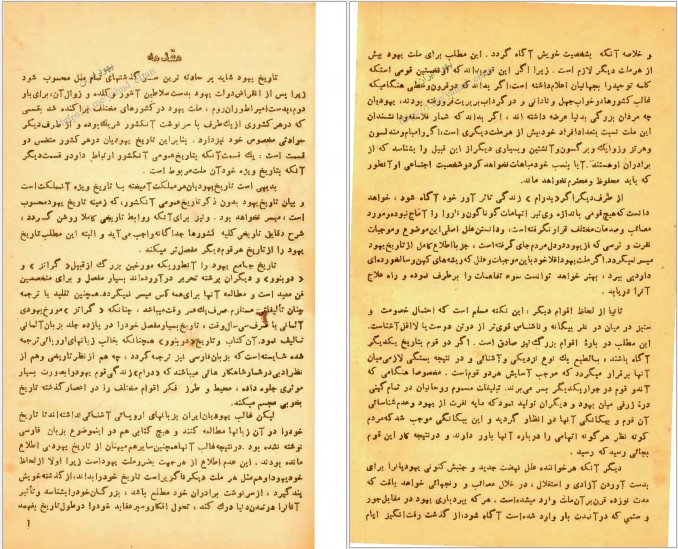 تاریخ یهود شاید پر حادثه ترین سرگذشتهای تمام ملل محسوب شود
زیرا پس از انقراض دولت یهود بدست سلاطین آشور و کلده و زوال آن، برای بار
دوم، بدست امپراطوران روم، ملت یهود در کشورهای مختلف پراکنده شد بقسمی
که در هر کشوری از یکطرف با سرنوشت آنکشور شریک بوده و از طرف دیگر
حوادثی مخصوص خود نیز دارد. بنابراین تاریخ یهودیان در هر کشور متضمن دو
قسمت است: یک قسمت آنکه بتاریخ عمومی آنکشور ارتباط دارد و قسمت دیگر
آنکه بتاریخ ویژه خود آن ملت مربوط است.
بدیهی است تاریخ یهودیان هر مملکت آمیخته با تاریخ ویژه آنمملکت است
و بیان تاریخ یهود بدون ذکر تاریخ عمومی آنکشور، که زمینه تاریخ یهود محسوب
است، میسر نخواهد بود. و نیز برای آنکه روابط تاریخی کاملا روشن گردد،
شرح دقایق تاریخی کلیه کشورها جداگانه واجب می‌آید و البته این مطلب تاریخ
یهود را از تاریخ هر قوم دیگر مفصل‌تر میکند.
تاریخ جامع یهود را آنطوریکه مورخین بزرگ از قبیل «گرانز» و
«دوبنور» و دیگران برشته تحریر در آورده‌اند بسیار مفصل و برای متخصصین
فن مفید است و مطالعه آنها برای همه کس میسر نمیگردد همچنین تقلید یا ترجمه
چنان تألیفاتی مستلزم صرف یک عمر وقت میباشد، چنانکه «گرانز» مورخ یهودی
آلمانی با صرف سی سال وقت، تاریخ بسیار مفصل خود را در یازده جلد بزبان آلمانی
تالیف نمود. آن کتاب و تاریخ «دوبنور» همچنانکه بغالب زبانهای اروپائی ترجمه
شده شایسته است که بزبان فارسی نیز ترجمه گردد، چه هم از نظر تاریخی و هم از
نظر ادبی در شمار شاهکار هائی میباشند که درام زندگی قوم یهود را بصورت بسیار
موثری جلوه داده، محیط و طرز فکر اقوام مختلف را در اعصار گذشته
بخوبی مجسم میکند.
لیکن غالب یهودیان ایران بزبانهای اروپائی آشنائی نداشته‌اند تا تاریخ
خود را در آن زبانها مطالعه کنند و هیچ کتابی هم در اینموضوع بزبان فارسی
نوشته نشده بود. در نتیجه غالب آنها همچنین سایر هم میهنان از تاریخ یهود بی اطلاع
مانده بودند. این عدم اطلاع از هر جهت بضرر ملت یهود است زیرا اولا از لحاظ
خود یهود او هم مثل هر ملت دیگر ناگزیر است تاریخ خود را بداند، از گذشته خویش
پند گیرد، از سرنوشت برادران خود مطلع باشد، بزرگان خود را بشناسد و تأثیر
آنان را در تمدن دنیا درک کند، تحول افکار و سیر عقاید خود را در طول تاریخ بفهمد
۱
و خلاصه آنکه بشخصیت خویش آگاه گردد. این مطلب برای ملت یهود بیش
از هر ملت دیگر لازم است. زیرا اگر این قوم بداند که او نخستین قومی است که
کلمه توحید را بجهانیان اعلام داشته است؛ اگر بداند که در قرون وسطی هنگامیکه
غالب کشورها در خواب جهل و نادانی و در گرداب بربریت فرو رفته بودند، یهودیان
چه مردان بزرگی بدنیا عرضه داشته اند، اگر بداند که شمار فلاسفه و دانشمندان
این ملت نسبت بتعداد افراد خود بیش از هر ملت دیگری است؛ اگر راممام و مندلسون
و هرتز و زولیک و برگسون و آنشتین و بسیاری دیگر از این قبیل را بشناسد که از
برادران او هستند. آیا بنسب خود مباهات نخواهد کرد و شخصیت اجتماعی او آنطور
که باید محفوظ و محترم نخواهد ماند.
از طرف دیگر اگر (بدرام) زندگی تاثر آور خود آگاه شود، خواهد
دانست که هیچ قومی باندازه وی تیر اتهامات گوناگون و ناروا را آماج نبوده و مورد
مصائب و صدمات مختلف قرار نگرفته است، و دانستن علل اصلی این موضوع و موجبات
نفرت و ترسی که از یهود در دل مردم جای گرفته است، جز با اطلاع کامل از تاریخ یهود
میسر نمیگردد. اگر ملت یهود اقلا خود باین موجبات و علل که ریشه‌های کهن و سالخورده‌ای
دارد پی ببرد، بهتر خواهد توانست سوء تفاهمات را برطرف نموده و راه علاج
آنرا دریابد.
ثانیا از لحاظ اقوام دیگر: این نکته مسلم است که احتمال خصومت و
ستیز در میان دو نفر بیگانه و ناشناس قوی‌تر از دو تن دوست یا لااقل آشناست.
این مطلب در بارهٔ اقوام بزرگ نیز صادق است. اگر دو قوم بتاریخ یکدیگر
آگاه باشند، بالطبع یک نوع نزدیکی و آشنائی و در نتیجه بستگی لازمی میان
آنها برقرار میگردد که موجب آسایش هر دو قوم است. مخصوصا هنگامی که
آندو قوم در جوار یکدیگر بسر می‌برند. تبلیغات مسموم روحانیان در تمام گیتی
درهٔ ژرفی میان یهود و دیگران تولید نمود که مایه نفرت از یهود و عدم شناسائی
آن قوم و بیگانگی آنها در انظار گردید و این بیگانگی موجب شد که مردم
کوته نظر هر گونه اتهامی را درباره آنها باور دارند و در نتیجه کار این قوم
بجائی رسید که رسید.
دیگر آنکه هر خواننده علل نهضت جدید و جنبش کنونی یهودیان را برای
بدست آوردن آزادی و استقلال، در خلال مصائب و رنجهائی خواهد یافت که
مدت نوزده قرن بر آن ملت وارد میشده است. هر که بیردباری یهود در مقابل جور
و ستمی که در آنمدت باو وارد شده است آگاه شود؛ از گذشت رقت انگیز ایام